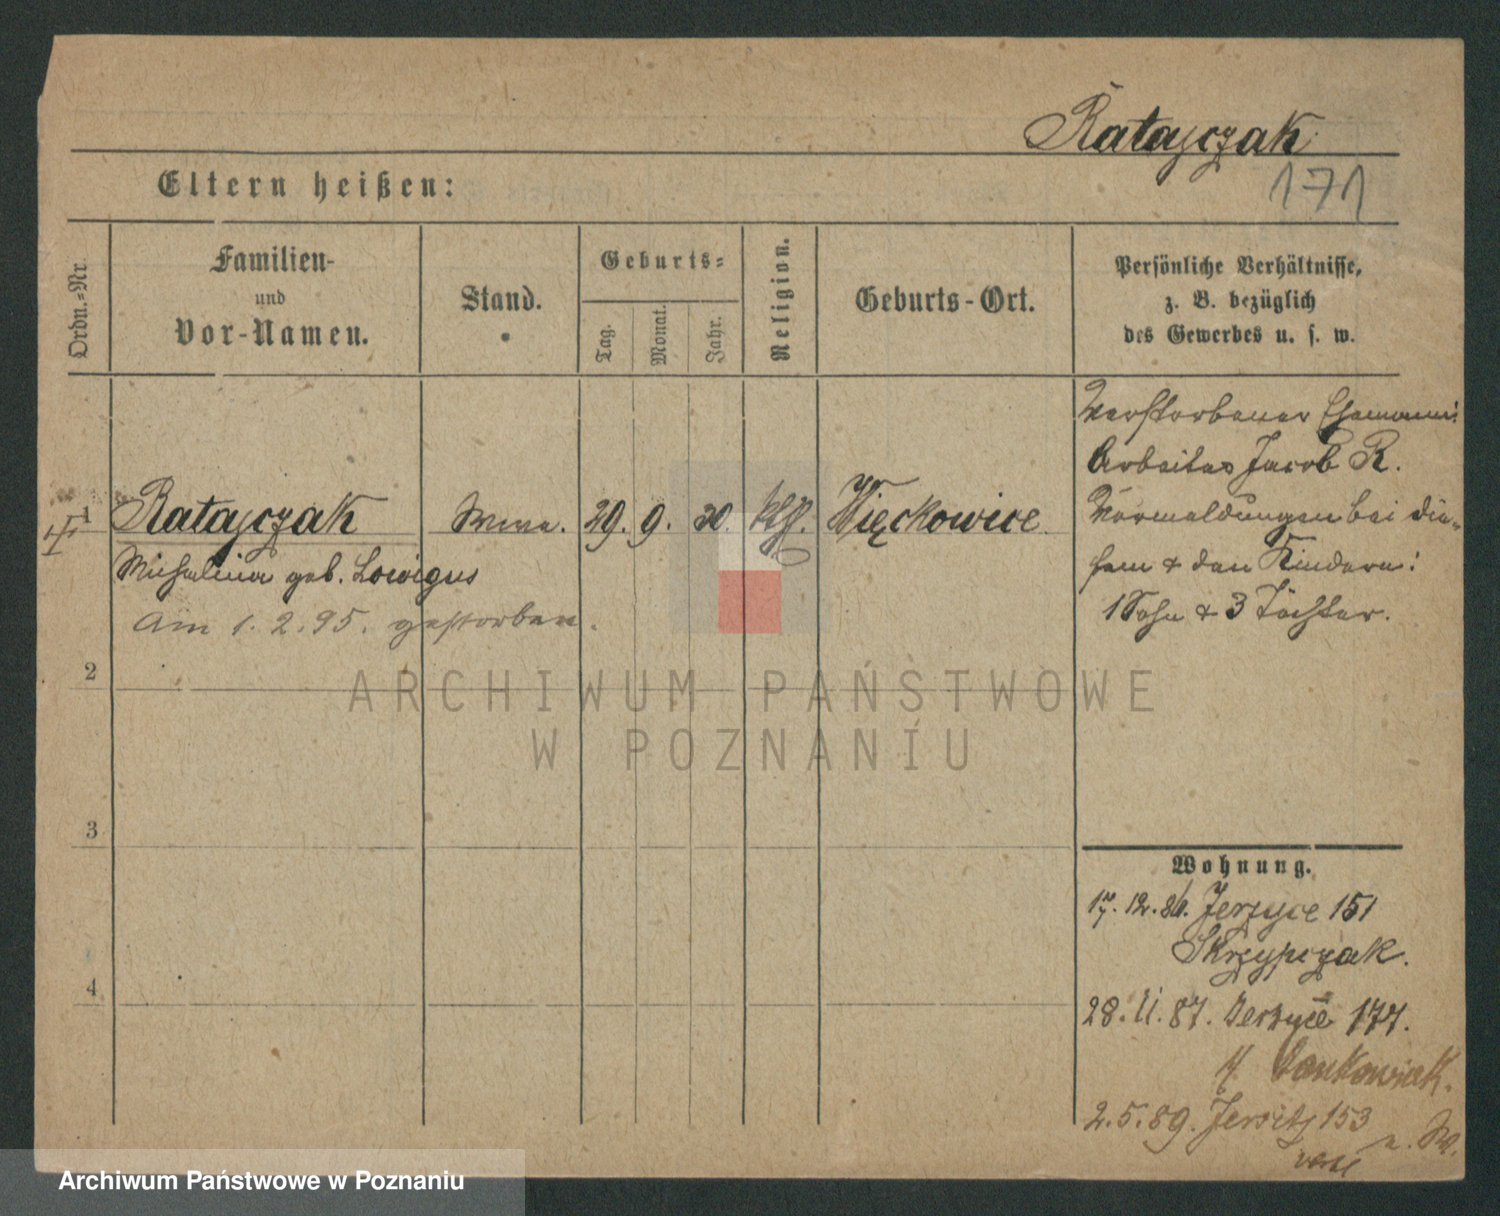 Ratajczak
171
Eltern heißen:
Ordn.=Nr.
Familien-
und
Vor-Namen.
Stand.
Geburts=
Tag.
Monat.
Jahr.
Religion.
Geburts-Ort.
Persönliche Verhältnisse,
z. B. bezüglich
des Gewerbes u. s. w.
1
Ratajczak
Wwe.
29. 9. 30.
kth.
Więckowice
Michalina geb. Lowigus
Am 1. 2. 95. gestorben.
Verstorbener Ehemann:
Arbeiter Jacob R.
Vormeldungen bei die=
sem & den Kindern:
1 Sohn & 3 Töchter.
2
3
4
Wohnung.
17. 12. 86. Jerzyce 151
Skrzypczak.
28. 11. 87. Jerzyce 177.
2. 5. 89. Jersitz 153
ARCHIWUM PAŃSTWOWE
W POZNANIU
Archiwum Państwowe w Poznaniu